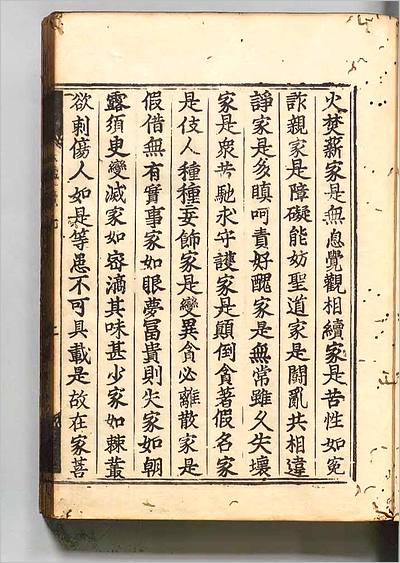 火焚薪家是無息覺觀相續家是苦性如寃
詐親家是障礙能妨聖道家是鬪亂共相違
諍家是多瞋呵責好醜家是無常雖久失壞
家是衆苦馳求守護家是顛倒貪著假名家
是伎人種種妄飾家是變異貪必離散家是
假借無有實事家如眼夢冨貴則失家如朝
露須臾變滅家如宻滴其味甚少家如棘叢
欲刺傷人如是等患不可具載是故在家菩